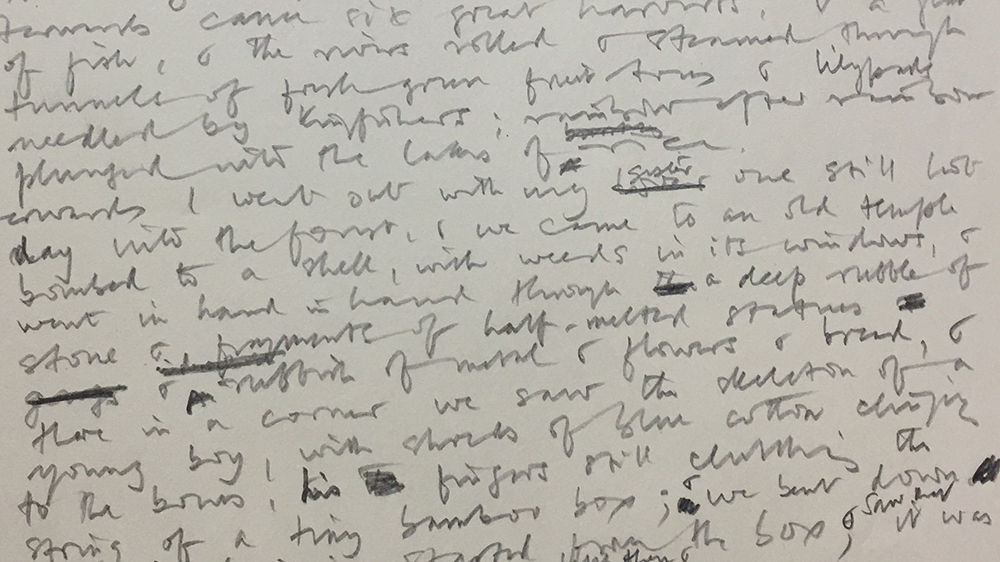 came six great harvests, & a year
of fish, & the rivers rolled & steamed through
tunnels of fresh green fruit trees & lilypads
needled by kingfishers; rainbow after rainbow
plunged into the lakes of
I went out with my sister one still hot
day into the forest, & we came to an old temple
bombed to a shell, with weeds in its windows, &
went in hand in hand through a deep rubble of
stone & fragments of half-melted statues
& rubbish of metal & flowers & bread, &
there in a corner we saw the skeleton of a
young boy, with shreds of blue cotton clinging
to the bones, his fingers still clutching the
string of a tiny bamboo box; & we bent down
started from the box, & saw that it was